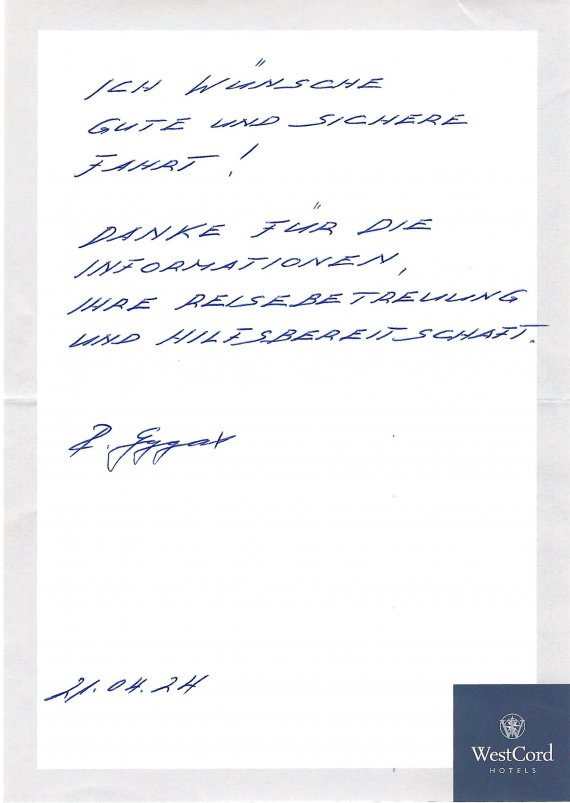 ICH WÜNSCHE
GUTE UND SICHERE
FAHRT!
DANKE FÜR DIE
INFORMATIONEN,
IHRE REISEBETREUUNG
UND HILFSBEREITSCHAFT.
P.
21.04.24
WestCord
HOTELS